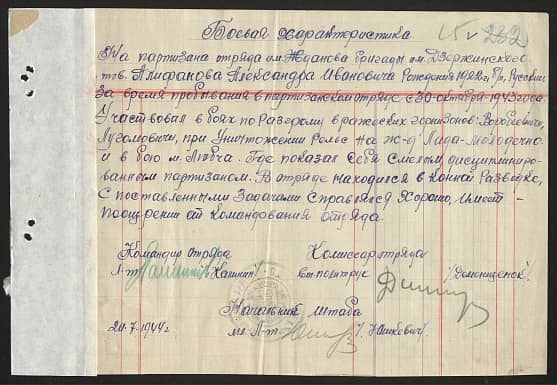 Боевая характеристика
На партизана отряда им. Жданова бригады им. Дзержинского
тов. Алифанова Александра Ивановича Рождения б/п, Русский
За время пребывания в партизанском отряде с 30 октября 1943 года
Участвовал в боях по Разгрому вражеских гарнизонов:
при Уничтожении Рельс на ж-д Лида-Молодечно
и в бою м. Любча. Где показал Себя смелым дисциплиниро-
ванным партизаном. В отряде находился в Конной Разведке,
С поставленными Задачами Справлялся Хорошо, Имеет
Поощрении от Командования отряда.
Командир отряда Комиссар отряда
Л-т политрук
Начальник штаба
1944 г. мл. Л-т